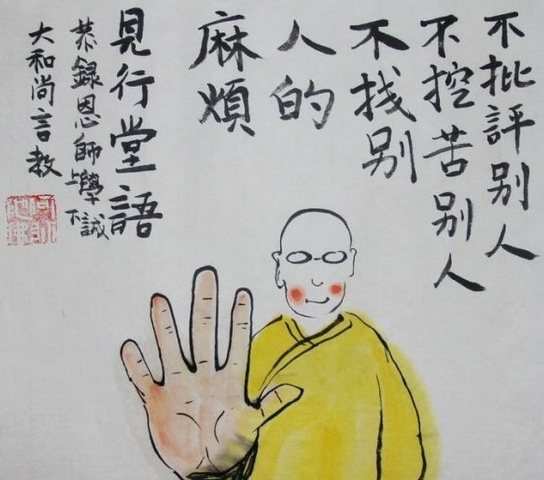 不批評别人
不控苦别人
不找别
人的
麻煩
見行堂語
恭錄恩師上學下誠
大和尚言教